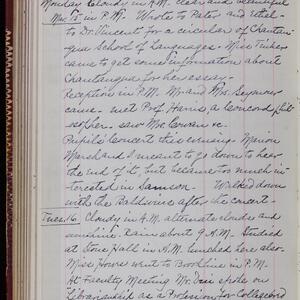 Monday Cloudy in A.M. clear and beautiful
Mar. 15 in P.M. Wrote to Pater and Ethel-
to Dr. Vincent for a circular of Chautau-
qua School of Languages. Miss Tucker
came to get some information about
Chautauqua for her essay.
Reception in P.M. Mr. and Mrs. Seymour
came. met Prof. Harris, a Concord phil-
osopher. saw Mr. Cowan &c.
Pupils' Concert this evening. Marion
Marsh and I meant to go down to hear
the end of it, but became too much in-
terested in Samson. Walked down
with the Baldwins after the concert.
Tues. 16. Cloudy in A.M. alternate clouds and
sunshine. Rain about 9 A.M. Studied
at Stone Hall in A.M. lunched here also.
Miss Howes went to Brookline in P.M.
At Faculty Meeting Mr. spoke on
Librarianship as a Profession for College